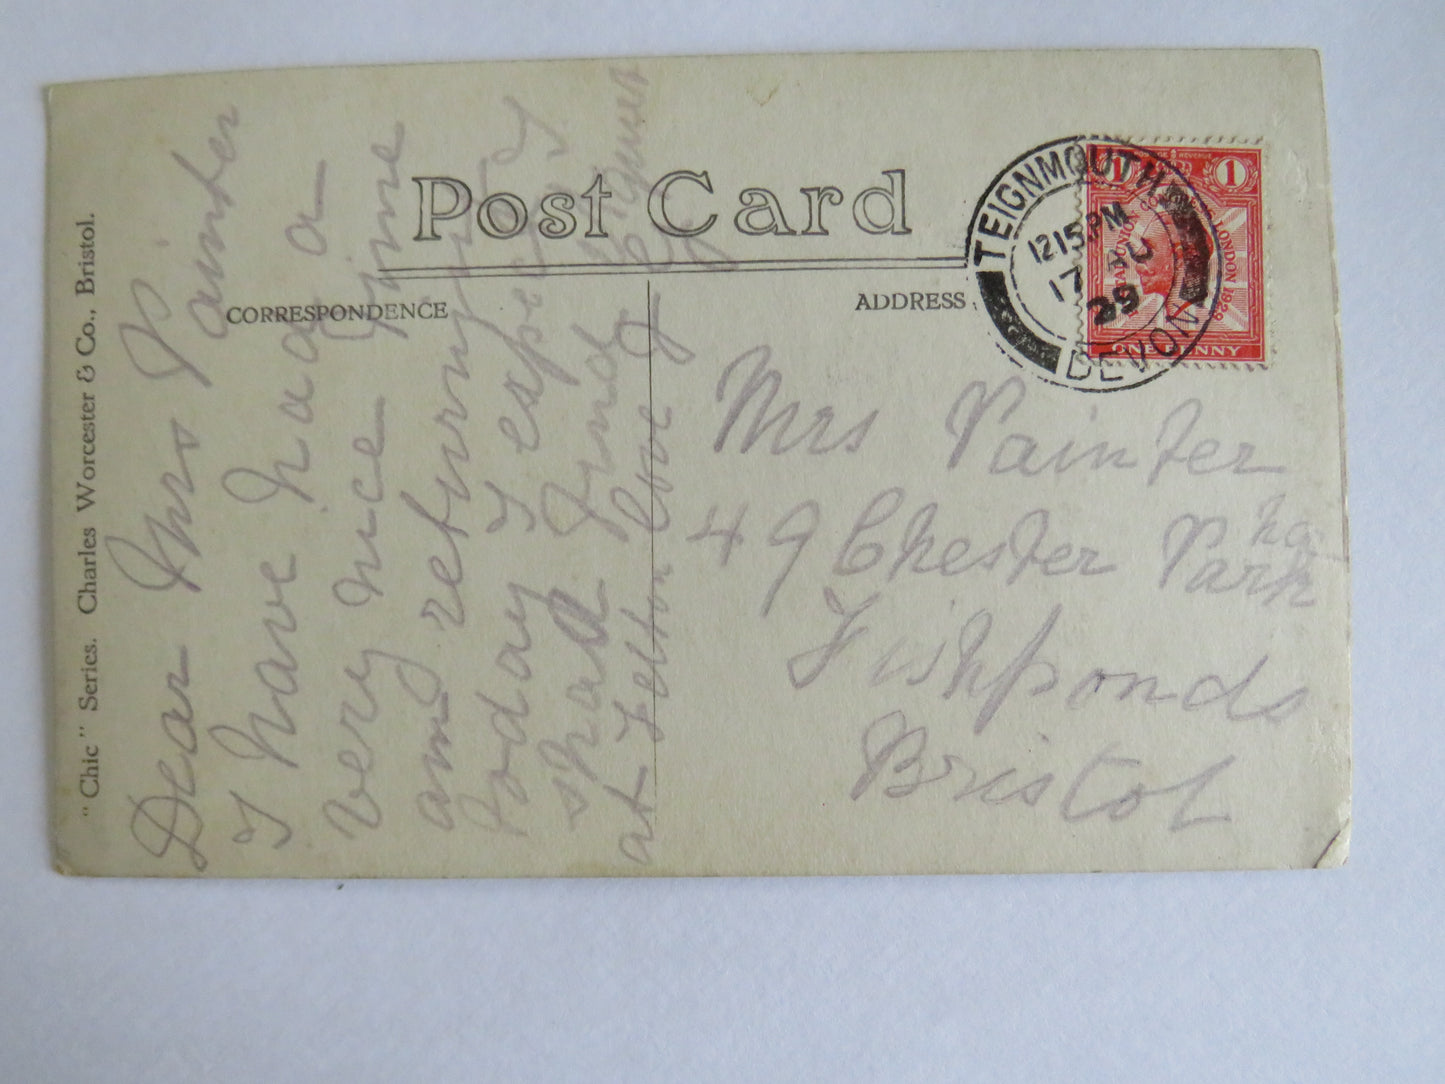 "Chic" Series. Charles Worcester & Co., Bristol.
Post Card
CORRESPONDENCE
ADDRESS
Dear Mrs Painter
I have had a
very nice time
and returning
today I expect
shall find
at Felton
love
TEIGNMOUTH
12 15 PM
17 AU
29
DEVON
1 1
POSTAGE REVENUE
POSTAL UNION CONGRESS LONDON 1929
ONE PENNY
Mrs Painter
49 Chester Park
Rd
Fishponds
Bristol